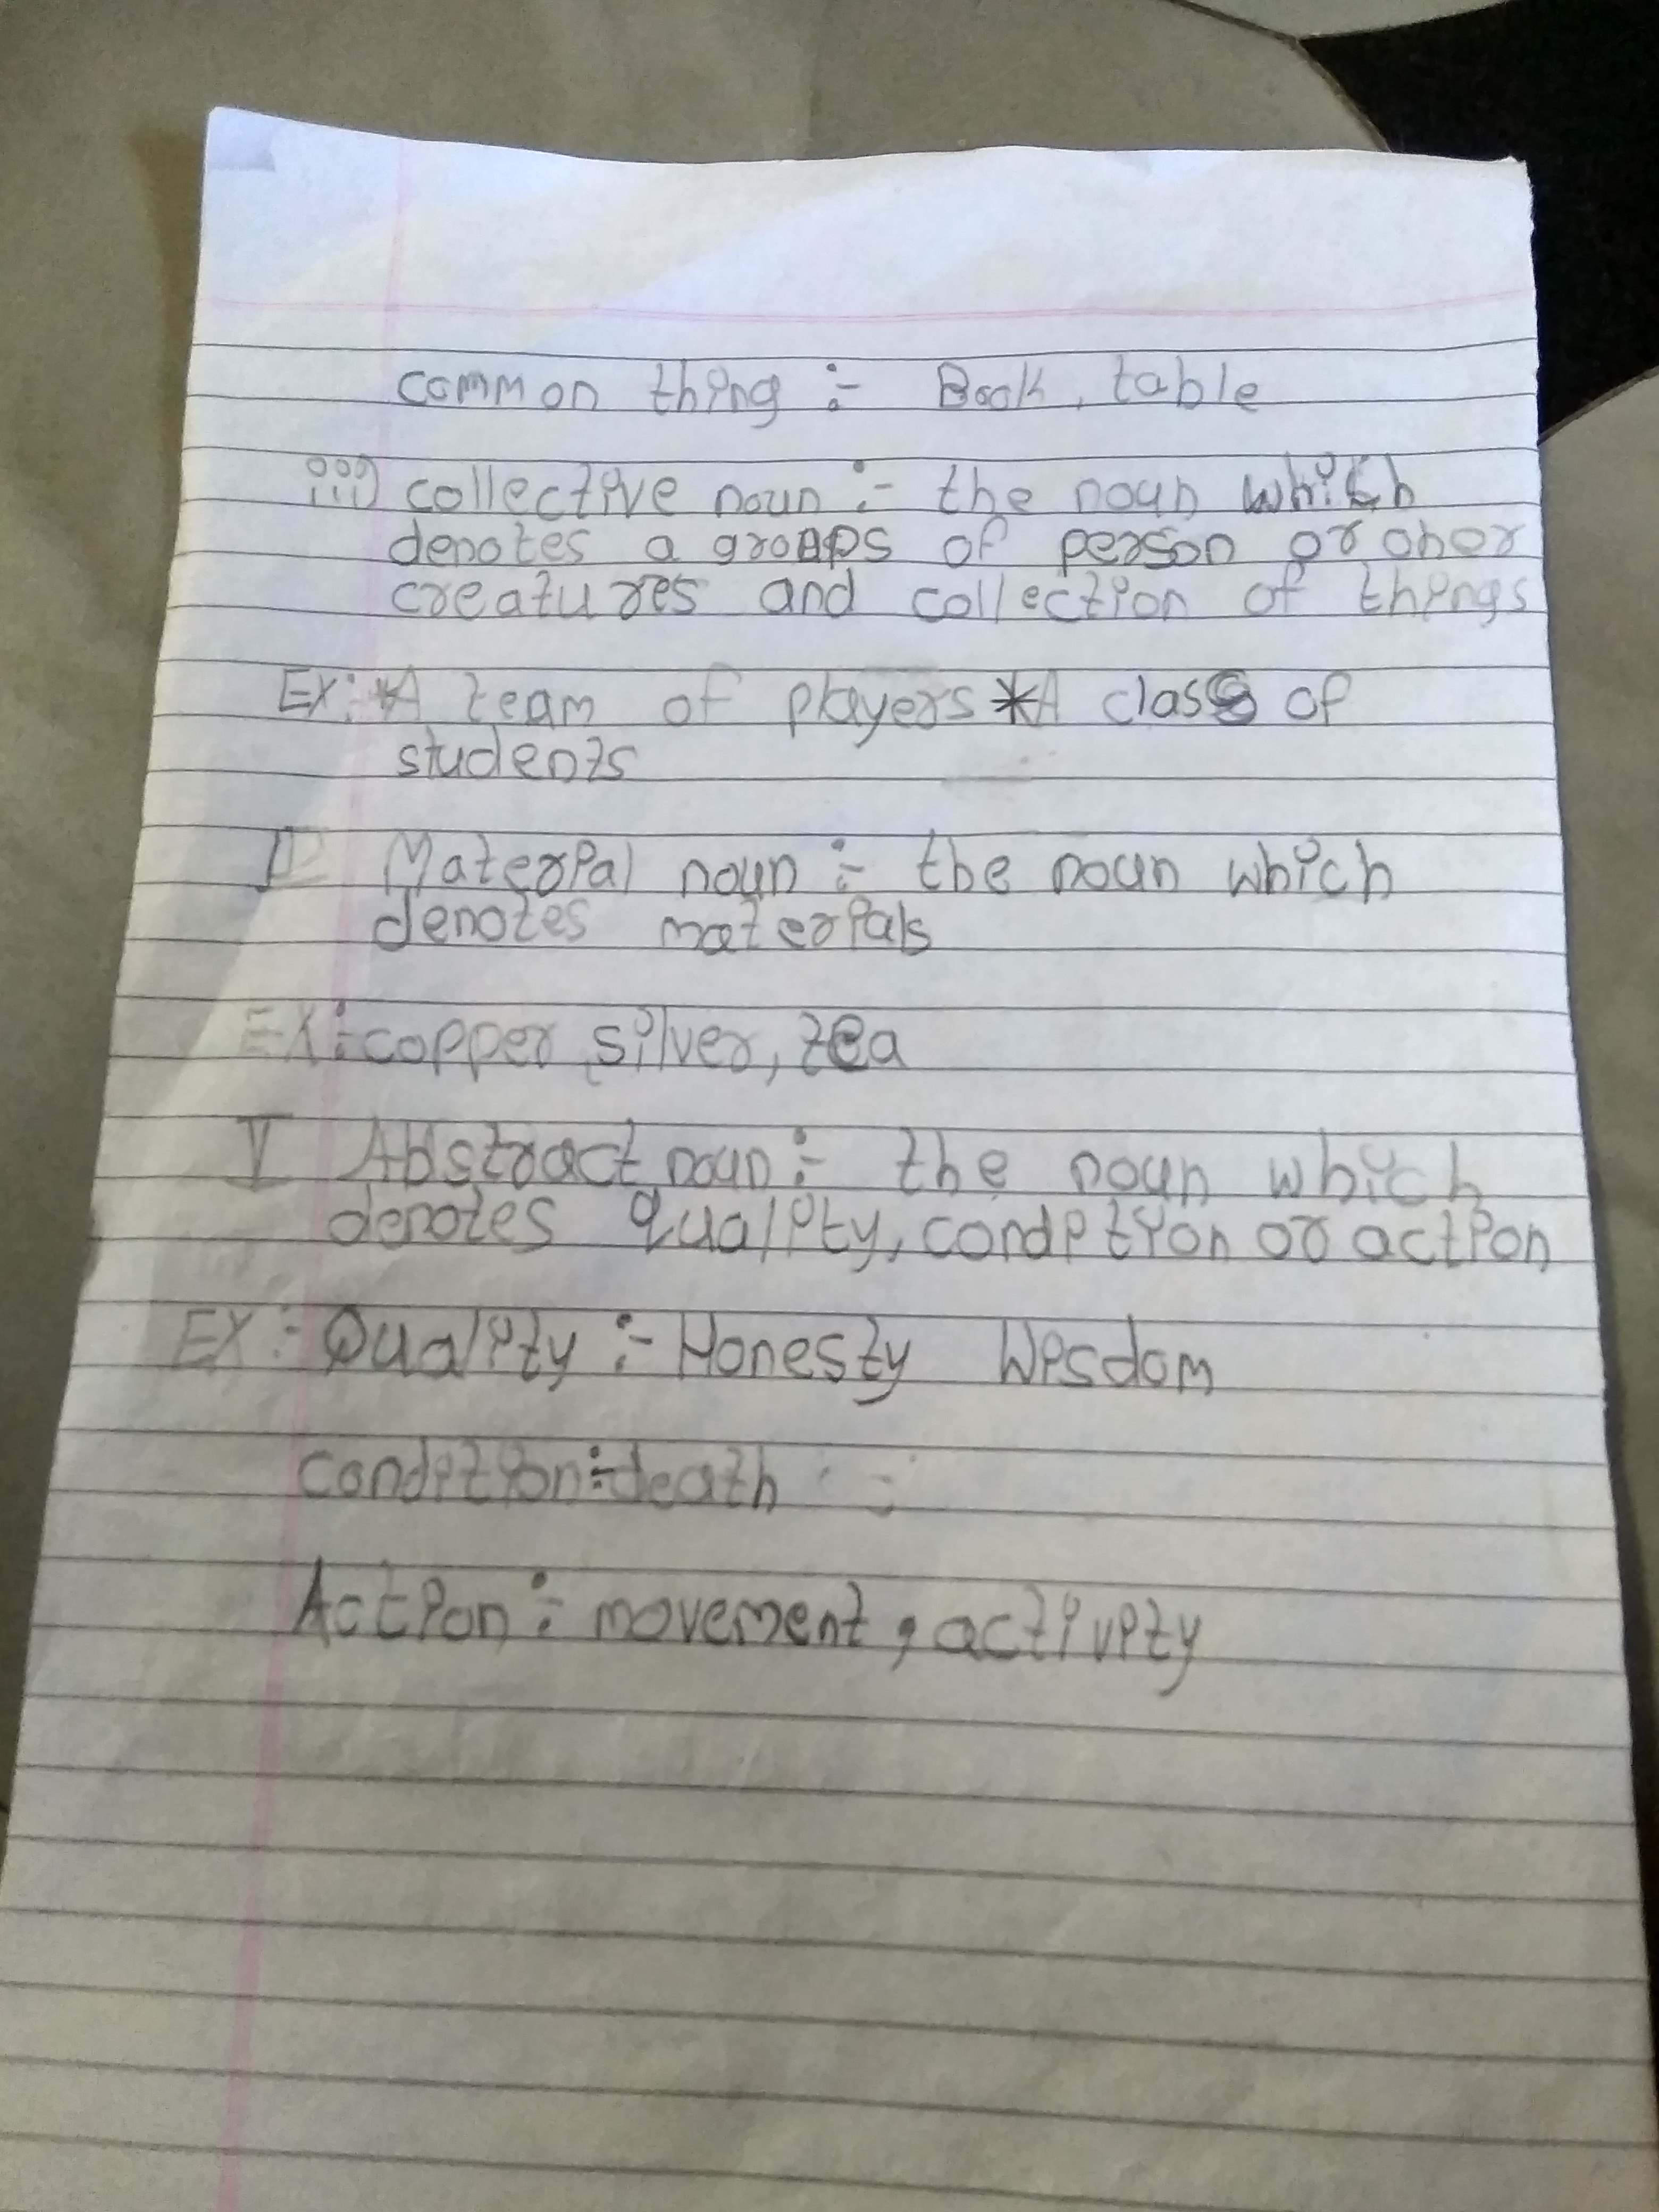 common thing :- Book, table
iii) collective noun :- the noun which
denotes a groups of person or oher
creatures and collection of things
Ex:- *A team of players *A class of
students
IV Material noun :- the noun which
denotes materials
EX:- copper, silver, tea
V Abstract noun :- the noun which
denotes quality, condition or action
EX :- Quality :- Honesty Wisdom
condition :- death
Action :- movement, activity